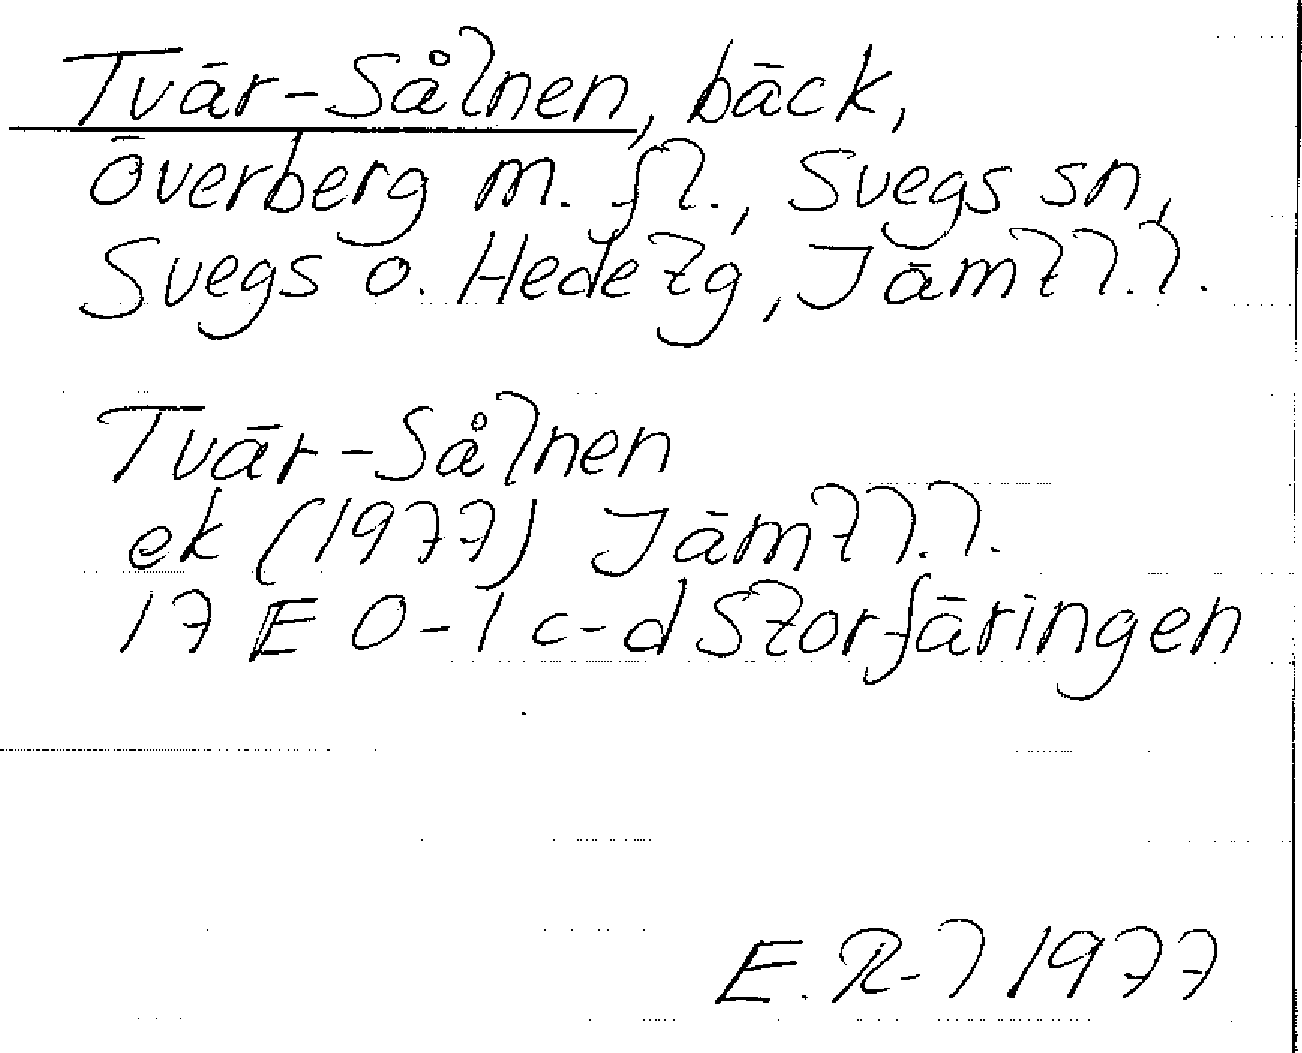 Tvär-Sålnen, bäck,
Överberg m. fl., Svegs sn,
Svegs o. Hede tg, Jämtl. l.
Tvär-Sålnen
ek (1977) Jämtl. l.
17 E 0-1 c-d Storfäringen
E. R-l 1977